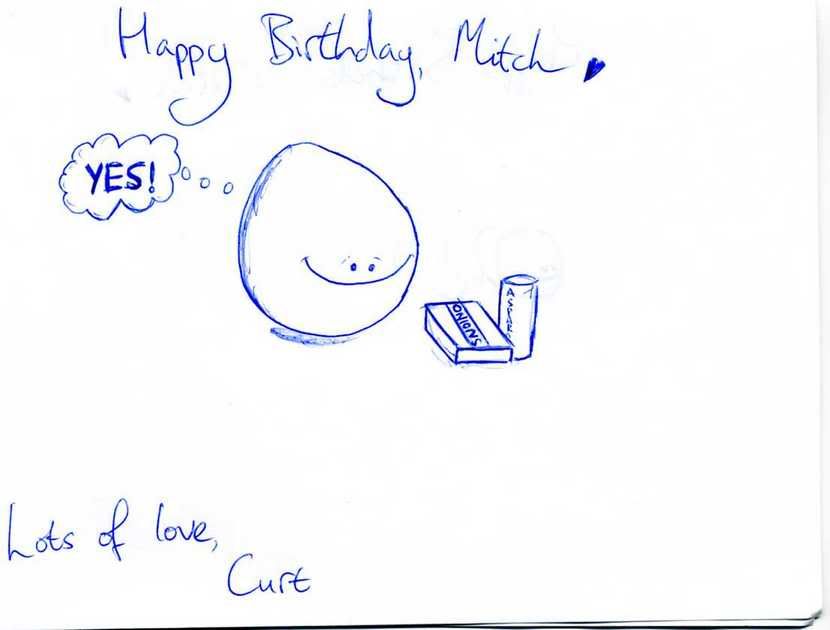 Happy Birthday, Mitch
YES!
ONIONS
Lots of love,
Curt